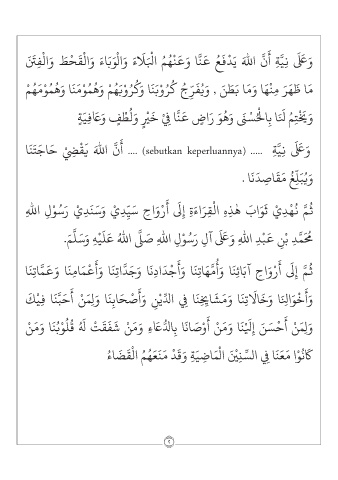 وَعَلَى نِيَّةِ أَنَّ اللهَ يَدْفَعُ عَنَّا وَعَنْهُمُ الْبَلَاءَ وَالْوَبَاءَ وَالْقَحْطَ وَالْفِتَنَ
مَا ظَهَرَ مِنْهَا وَمَا بَطَنَ . وَيُفَرِّجُ كُرُوْبَنَا وَكُرُوْبَهُمْ وَهُمُوْمَنَا وَهُمُوْمَهُمْ
وَيَخْتِمُ لَنَا بِالْحُسْنَى وَهُوَ رَاضٍ عَنَّا فِيْ خَيْرٍ وَلُطْفٍ وَعَافِيَةٍ
وَعَلَى نِيَّةِ ..... (sebutkan keperluannya) .... أَنَّ اللهَ يَقْضِيْ حَاجَتَنَا
وَيُبَلِّغُ مَقَاصِدَنَا .
ثُمَّ نُهْدِيْ ثَوَابَ هٰذِهِ الْقِرَاءَةِ إِلَى أَرْوَاحِ سَيِّدِيْ وَسَنَدِيْ رَسُوْلِ اللهِ
مُحَمَّدِ بْنِ عَبْدِ اللهِ وَعَلَى آلِ رَسُوْلِ اللهِ صَلَّى اللهُ عَلَيْهِ وَسَلَّمَ.
ثُمَّ إِلَى أَرْوَاحِ آبَائِنَا وَأُمَّهَاتِنَا وَأَجْدَادِنَا وَجَدَّاتِنَا وَأَعْمَامِنَا وَعَمَّاتِنَا
وَأَخْوَالِنَا وَخَالَاتِنَا وَمَشَايِخِنَا فِي الدِّيْنِ وَأَصْحَابِنَا وَلِمَنْ أَحَبَّنَا فِيْكَ
وَلِمَنْ أَحْسَنَ إِلَيْنَا وَمَنْ أَوْصَانَا بِالدُّعَاءِ وَمَنْ شَفَقَتْ لَهُ قُلُوْبُنَا وَمَنْ
كَانُوْا مَعَنَا فِي السِّنِيْنَ الْمَاضِيَةِ وَقَدْ مَنَعَهُمُ الْقَضَاءُ
٢